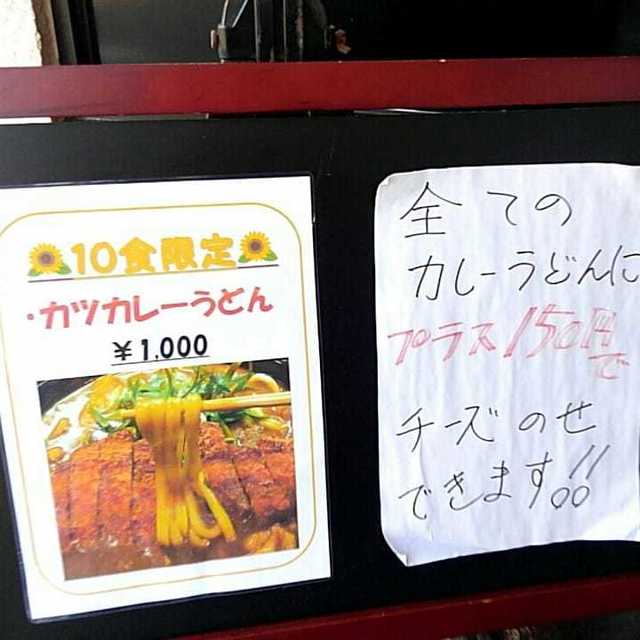 10食限定
・カツカレーうどん
￥1,000
全ての
カレーうどんに
プラス150円
で
チーズのせ
できます!!